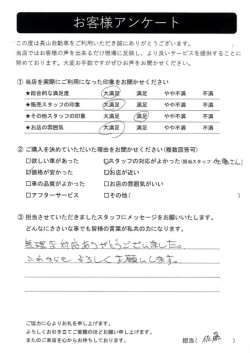 お客様アンケート
この度は長山自動車をご利用いただき誠にありがとうございます。
当店ではお客様の声を出来るだけ現場に反映し、より良いサービスを提供することに
努めております。大変お手数ですがぜひお声をお聞かせください。
① 当店を実際にご利用になった印象をお聞かせください
★総合的な満足度 大満足 満足 やや不満 不満
★販売スタッフの印象 大満足 満足 やや不満 不満
★その他スタッフの印象 大満足 満足 やや不満 不満
★お店の雰囲気 大満足 満足 やや不満 不満
② ご購入を決めていただいた理由をお聞かせください(複数回答可)
□欲しい車があった ☑スタッフの対応がよかった(担当スタッフ:佐藤さん)
☑価格が安かった □お店が近い
□車の品質がよかった □お店の雰囲気がいい
□アフターサービス □その他( )
③ 担当させていただきましたスタッフにメッセージをお願いいたします。
どんなにささいな事でも皆様の言葉が私共の力になります。
対応ありがとうございました。
これからも よろしくお願いします。
ご協力に心よりお礼を申し上げます。
よろしくお引き立てご愛顧のほどお願い申し上げます。
またのご来店を心からお待ちしております。
担当( 佐藤 )